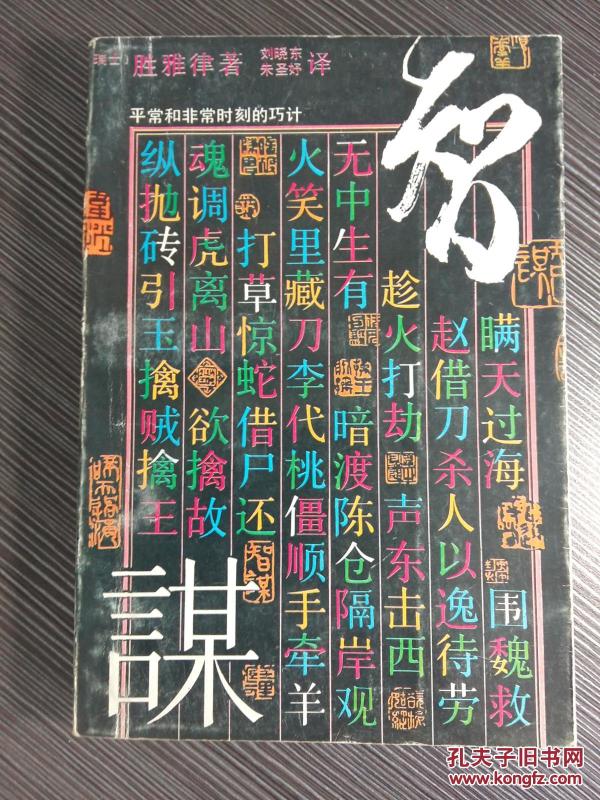 (瑞士)胜雅律著 刘晓东 朱圣妤 译
平常和非常时刻的巧计
智
瞒天过海 围魏救
赵借刀杀人以逸待劳
趁火打劫 声东击西
无中生有 暗渡陈仓隔岸观
火笑里藏刀李代桃僵顺手牵羊
打草惊蛇借尸还
魂调虎离山 欲擒故
纵抛砖引玉擒贼擒王
謀
智謀
孔夫子旧书网
www.kongfz.com